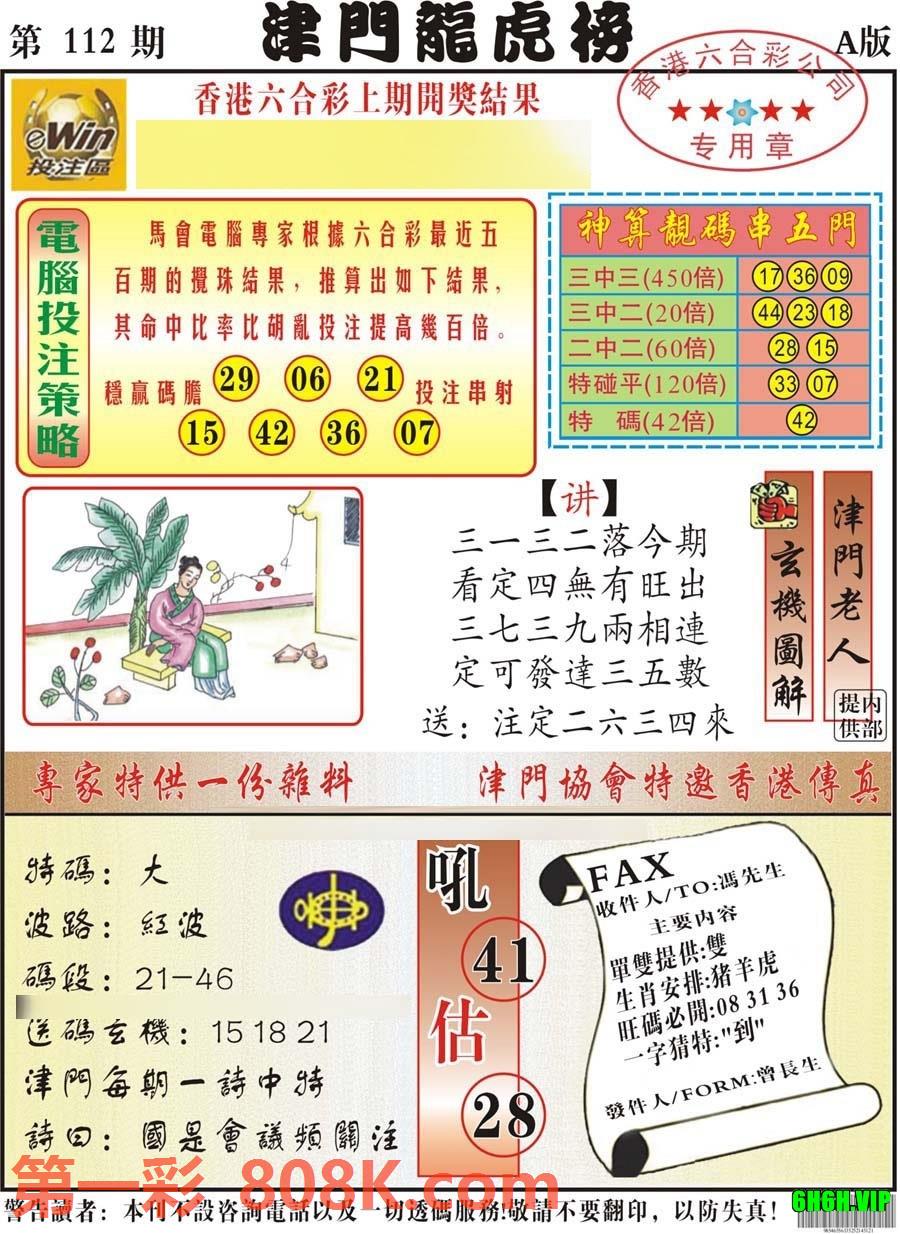 第 112 期
津門龍虎榜
A版
eWin
投注區
香港六合彩上期開獎結果
香港六合彩公司
专用章
電腦投注策略
馬會電腦專家根據六合彩最近五
百期的攪珠結果，推算出如下結果，
其命中比率比胡亂投注提高幾百倍。
穩贏碼膽 29 06 21 投注串射
15 42 36 07
神算靚碼串五門
三中三(450倍) 17 36 09
三中二(20倍) 44 23 18
二中二(60倍) 28 15
特碰平(120倍) 33 07
特 碼(42倍) 42
【讲】
三一三二落今期
看定四無有旺出
三七三九兩相連
定可發達三五數
送：注定二六三四來
玄機圖解
津門老人
內部提供
專家特供一份雜料
津門協會特邀香港傳真
特碼：大
波路：紅波
碼段：21—46
送碼玄機：15 18 21
津門每期一詩中特
詩曰：國是會議頻關注
吼
41
估
28
FAX
收件人/TO:馮先生
主要內容
單雙提供:雙
生肖安排:猪羊虎
旺碼必開:08 31 36
一字猜特:"到"
發件人/FORM:曾長生
第一彩 808K.com
警告讀者：本刊不設咨詢電話以及一切透碼服務!敬請不要翻印，以防失真!
6H6H.VIP